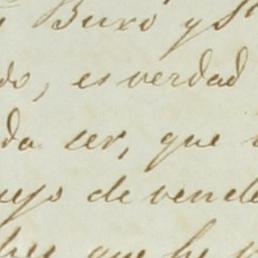 Buró y S
do, es verdad
da ser, que
uyo de vende
hay que